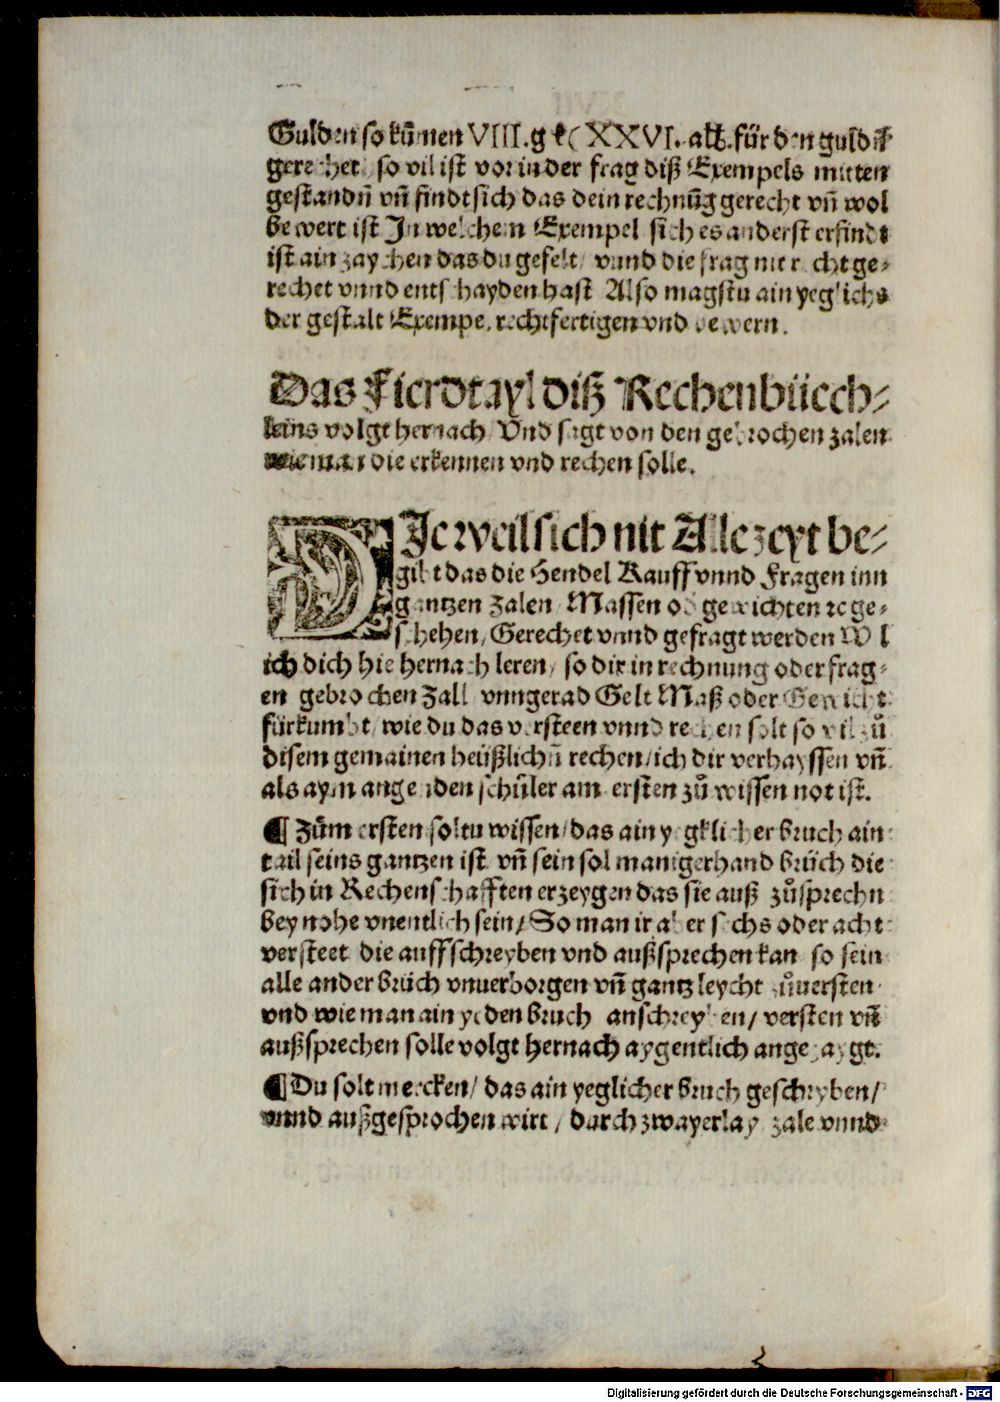 Gulden so kūmen VIII. XXVI. alb. für den guldē
gerechet so vil ist vor in der frag diß Exempels mitten
gestandñ vñ findt sich das dein rechnūg gerecht vñ wol
bewert ist In welchem Exempel sich es anderst erfindt
ist ain zaychen das du gefelt / vnnd die frag nit recht ge⸗
rechet vnnd entschayden hast Also magstu ain yeglichs
der gestalt Exempel rechtfertigen vnd bewern.
Das Fierdtayl diß Rechenbüech⸗
leins volgt hernach Vnd sagt von den gebrochen zalen
wie man die erkennen vnd rechen solle.
DIe weil sich nit Alle zeyt be⸗
gibt das die Hendel Kauff vnnd Fragen inn
gantzen zalen / Massen od gewichten ꝛc ge⸗
schehen / Gerechet vnnd gefragt werden Wil
ich dich hie hernach leren / so dir in rechnung oder frag⸗
en gebrochen Zall vnngerad Gelt Maß oder Gewicht
fürkumbt / wie du das versteen vnnd rechen solt so vil zů
disem gemainen heüßlichñ rechen / ich dir verhayssen vñ
als aym angenden schůler am ersten zů wissen not ist.
¶ Zům ersten soltu wissen / das ain yegklicher bruch ain
tail seins gantzen ist vñ sein sol manigerhand brüch die
sich in Rechenschafften erzeygen das sie auß zůsprechn
bey nohe vnentlich sein / So man ir aber sechs oder acht
versteet die auffschreyben vnd außsprechen kan so sein
alle ander brüch vnuerborgen vñ gantz leycht zůuersten
vnd wie man ain yeden bruch anschreyben / versten vñ
außsprechen solle volgt hernach aygentlich angezaygt.
¶ Du solt mercken / das ain yeglicher bruch geschryben /
vnnd außgesprochen wirt / durch zwayerlay zale vnnd
Digitalisierung gefördert durch die Deutsche Forschungsgemeinschaft - DFG